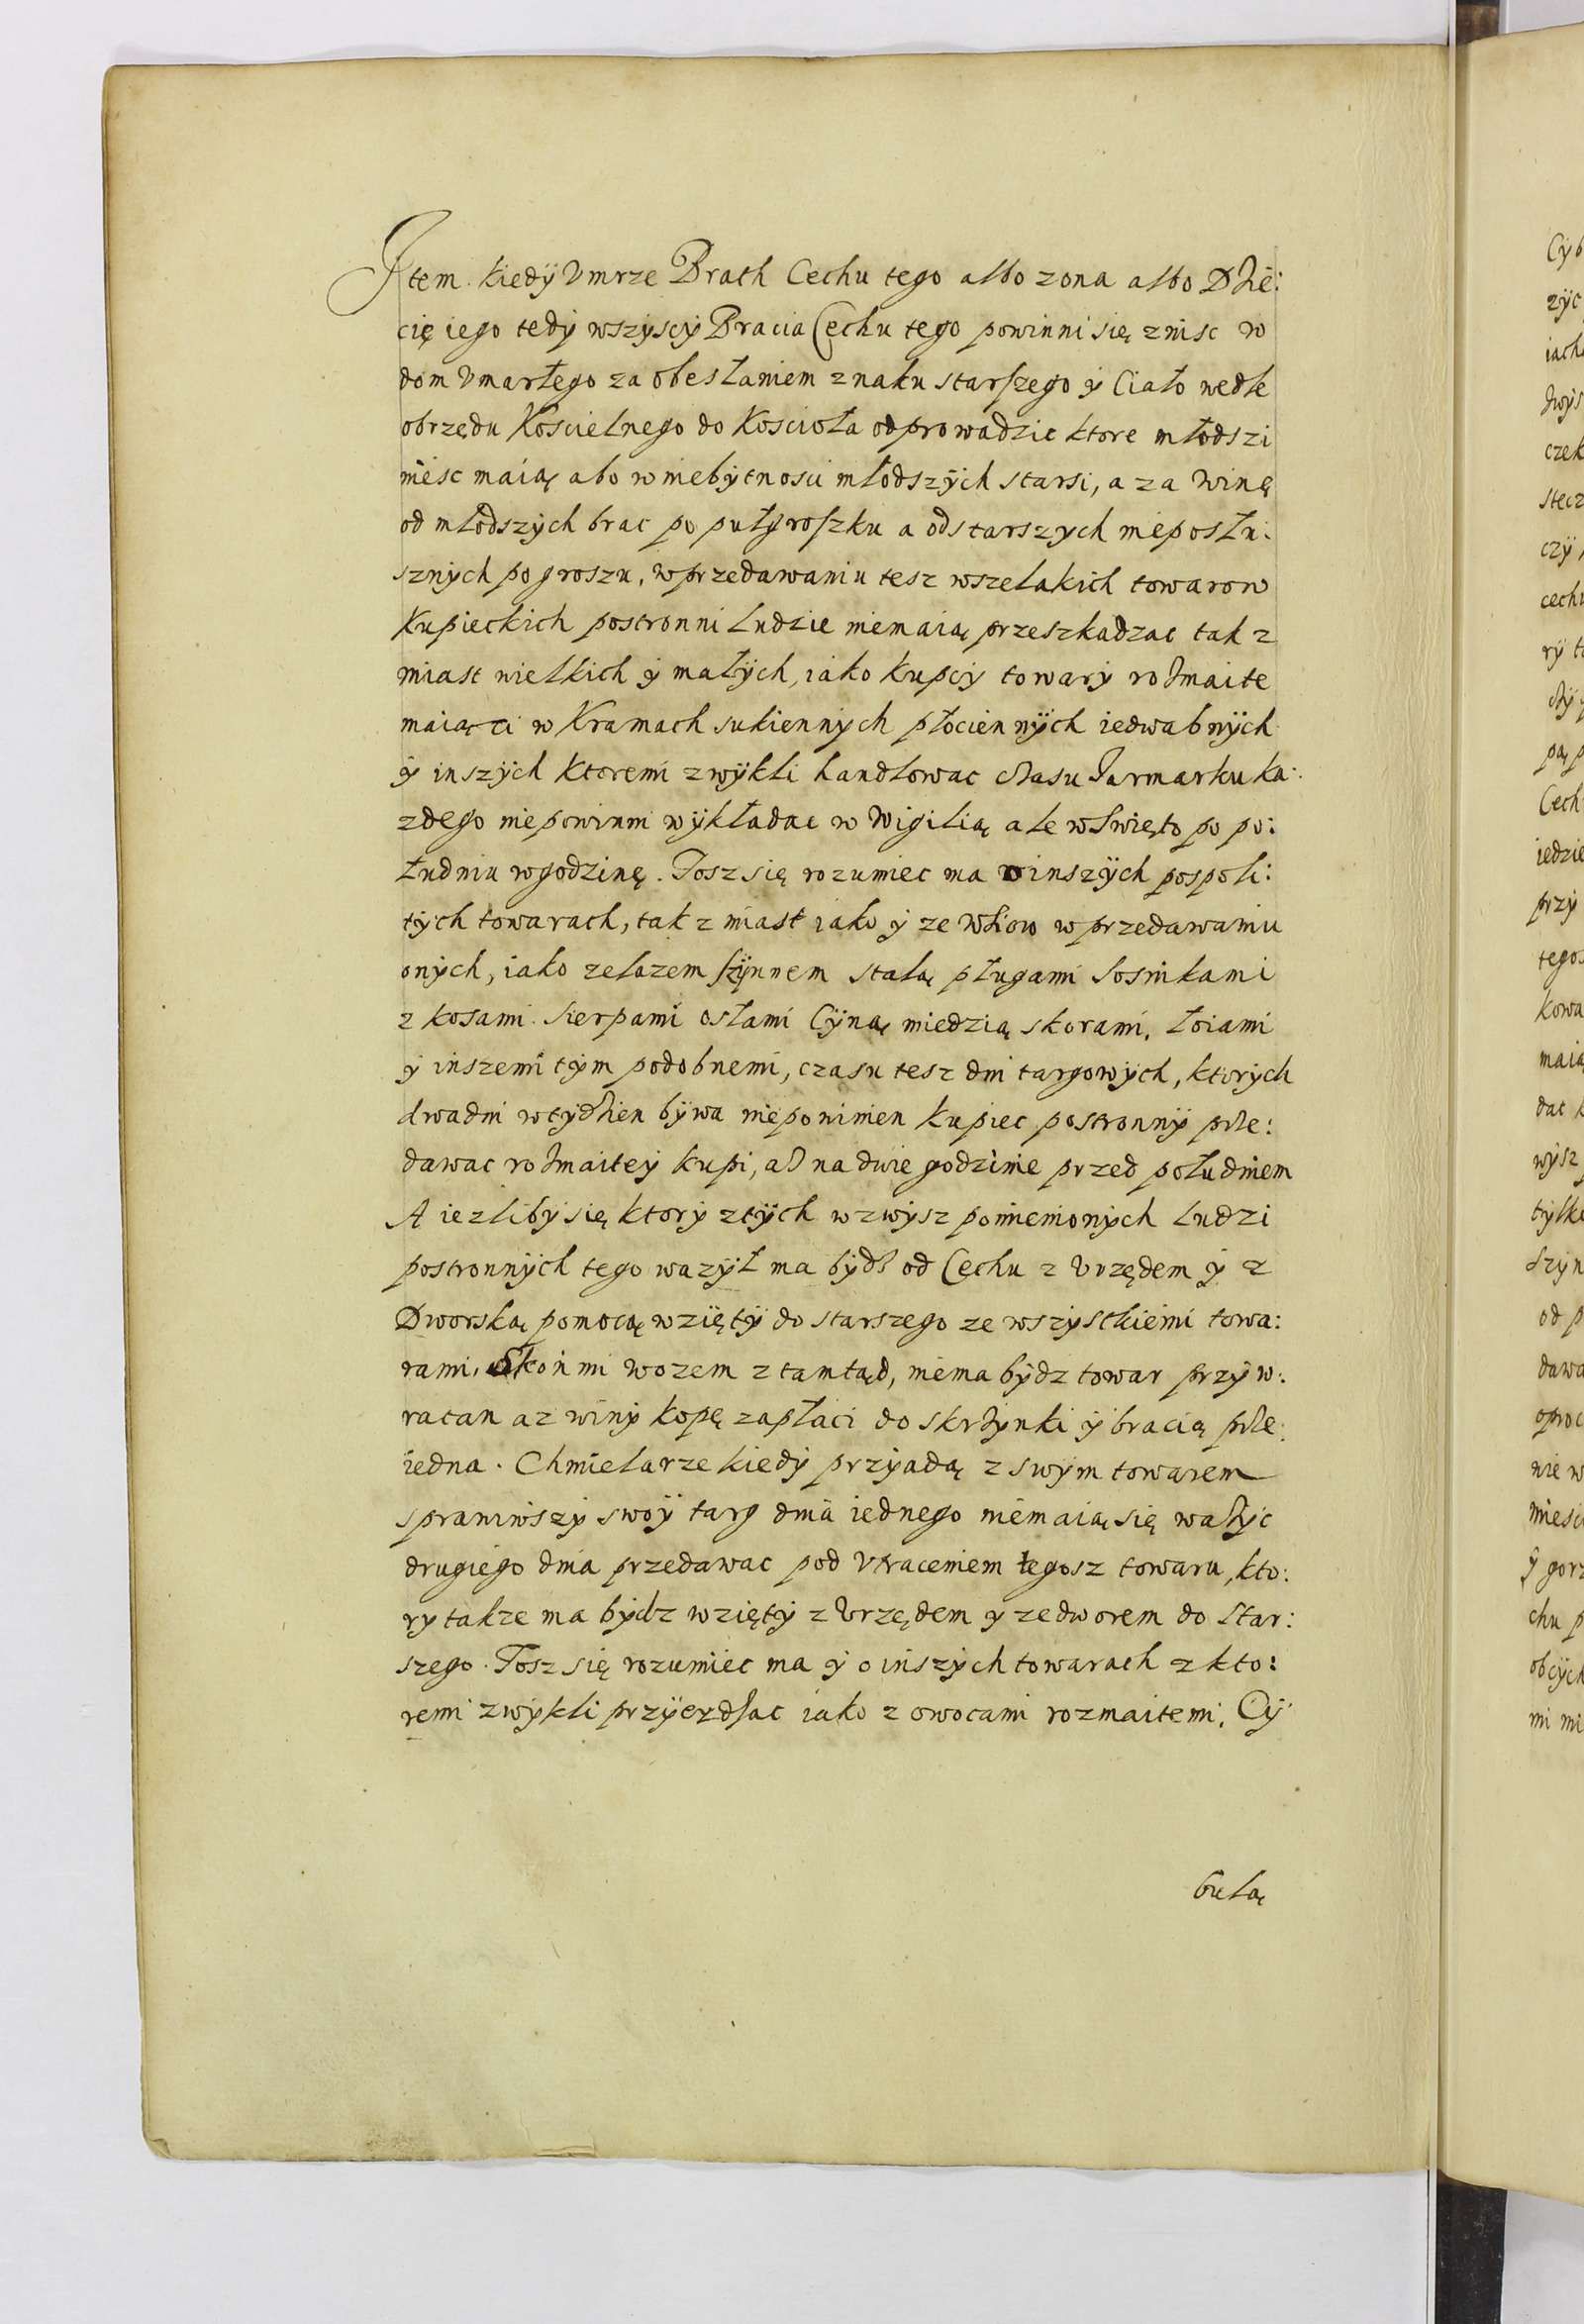 Item. kiedÿ Vmrze Brath Cechu tego albo zona albo Dzie:
cię iego tedÿ wszÿscÿ Bracia Cechu tego powinni się znisc w
dom Vmarłego za obesłaniem znaku starszego ÿ Ciało wedle
obrzędu Koscielnego do Koscioła odprowadzic ktore młodszi
niesc maią abo w niebÿtnosci młodszÿch starsi, a za winę
od młodszÿch brac po pułgroszku a od starszych nieposłu:
sznÿch po groszu, w przedawaniu tesz wszelakich towarow
Kupieckich postronni ludzie niemaią przeszkadzac tak z
miast wielkich ÿ małÿch, iako kupcÿ towarÿ rozmaite
maiąci w Kramach sukiennÿch płociennÿch iedwabnÿch
ÿ inszÿch ktoremi zwÿkli handlowac czasu Jarmarku ka:
zdego niepowinni wÿkładac w Wigilią ale w Swięto po po:
łudniu w godzinę. Tosz się rozumiec ma o inszÿch pospoli:
tÿch towarach, tak z miast iako ÿ ze wsiow w przedawaniu
onÿch, iako zelazem szÿnnem stalą pługami losnikami
z kosami. sierpami osłami Cÿną miedzią skorami, łoiami
ÿ inszemi tÿm podobnemi, czasu tesz dni targowÿch, ktorych
dwa dni w tÿdzien bÿwa niepowinien kupiec postronnÿ prze:
dawac rozmaiteÿ kupi, az na dwie godzinie przed południem
A iezlibÿ się ktorÿ z tÿch wzwÿsz pomienionÿch ludzi
postronnÿch tego wazÿł ma bÿdz od Cechu z Vrzędem ÿ z
Dworską pomocą wziętÿ do starszego ze wszÿstkiemi towa:
rami, Skonmi wozem z tamtąd, niema bÿdz towar przÿw:
racan az winÿ kopę zapłaci do skrzÿnki ÿ bracią prze:
iedna. Chmielarze kiedÿ przÿiadą z swÿm towarem
sprawiwszÿ swoÿ targ dnia iednego niemaią się wazÿc
drugiego dnia przedawac pod Vtraceniem tegosz towaru, kto:
rÿ takze ma bÿdz wziętÿ z Vrzędem ÿ ze dworem do star:
szego. Tosz się rozumiec ma ÿ o inszÿch towarach z kto:
remi zwÿkli przÿezdzac iako z owocami rozmaitemi, Cÿ
bulą